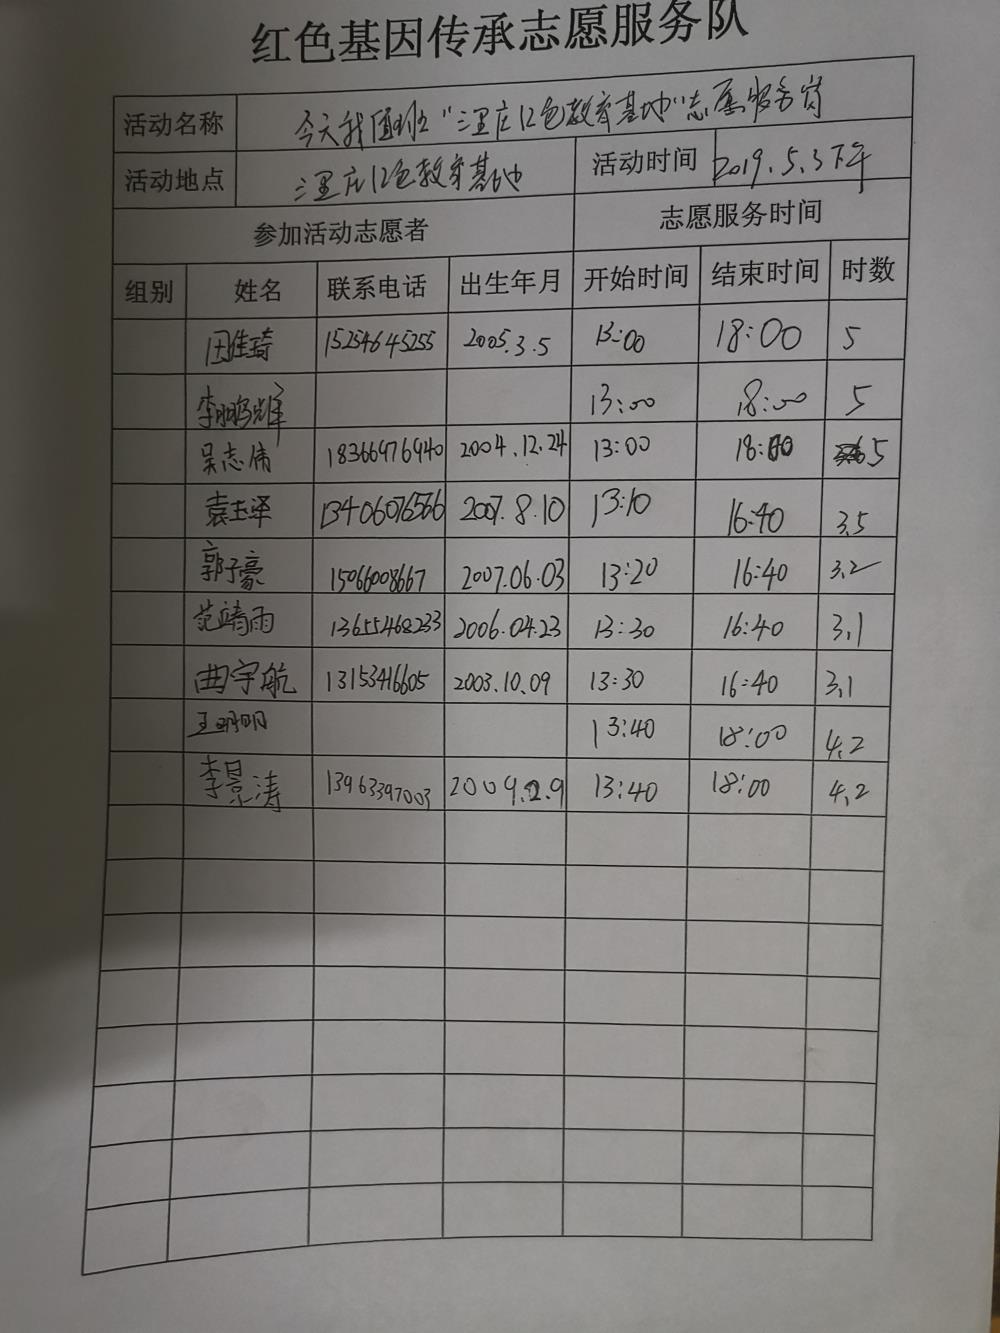 红色基因传承志愿服务队
活动名称 今天我值班"三里庄红色教育基地"志愿服务岗
活动地点 三里庄红色教育基地 活动时间 2019.5.3下午
参加活动志愿者 志愿服务时间
组别 姓名 联系电话 出生年月 开始时间 结束时间 时数
佳琦 15254645255 2005.3.5 13:00 18:00 5
李鹏辉 13:00 18:00 5
吴志伟 18366976940 2004.12.24 13:00 18:00 5
袁玉泽 13406076566 2007.8.10 13:10 16:40 3.5
郭子豪 15066008667 2007.06.03 13:20 16:40 3.2
范靖雨 13655468233 2006.04.23 13:30 16:40 3.1
曲宇航 13153416605 2003.10.09 13:30 16:40 3.1
王明明 13:40 18:00 4.2
李景涛 13963397003 2009.2.9 13:40 18:00 4.2